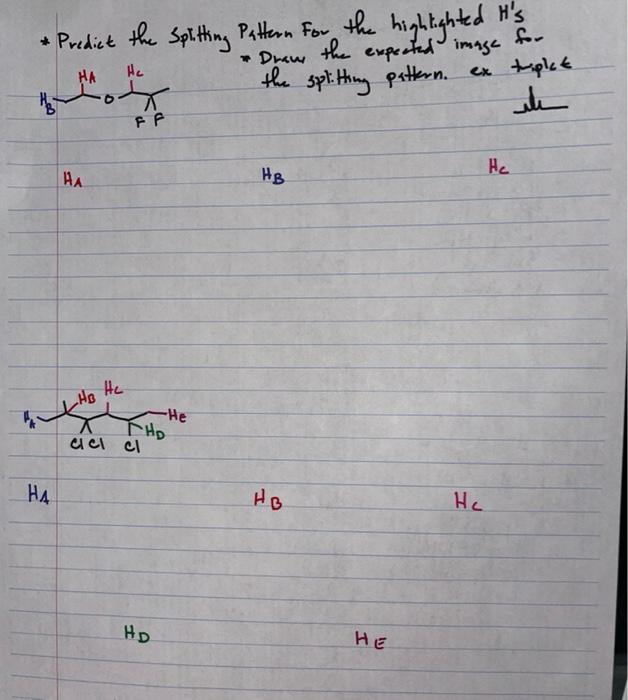 * Predict the Splitting Pattern For the highlighted H's
* Draw the expected image for
the splitting pattern. ex triplet
HA Hc
HB O
F F
HA HB Hc
HB Hc
HA He
HD
Cl Cl Cl
HA HB Hc
HD HE